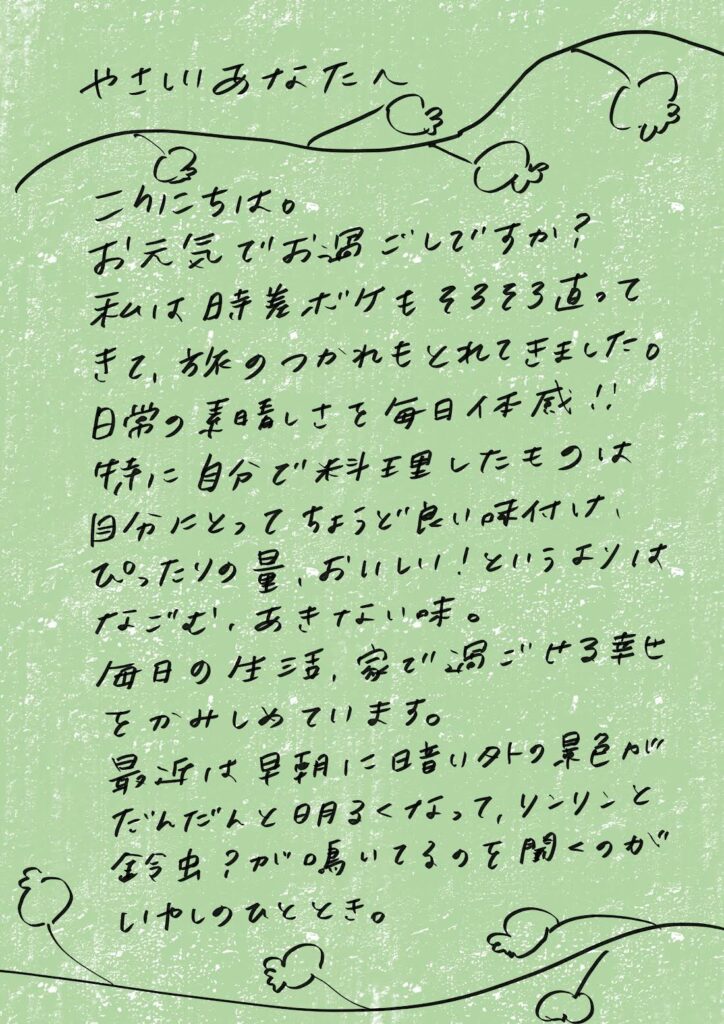 やさしいあなたへ
こんにちは。
お元気でお過ごしですか?
私は時差ボケもそろそろ直って
きて、旅のつかれもとれてきました。
日常の素晴しさを毎日体感!!
特に自分で料理したものは
自分にとってちょうど良い味付け、
ぴったりの量、おいしい!というよりは
なごむ、あきない味。
毎日の生活、家で過ごせる幸せ
をかみしめています。
最近は早朝に暗い外の景色が
だんだんと明るくなって、リンリンと
鈴虫?が鳴いてるのを聞くのが
いやしのひととき。